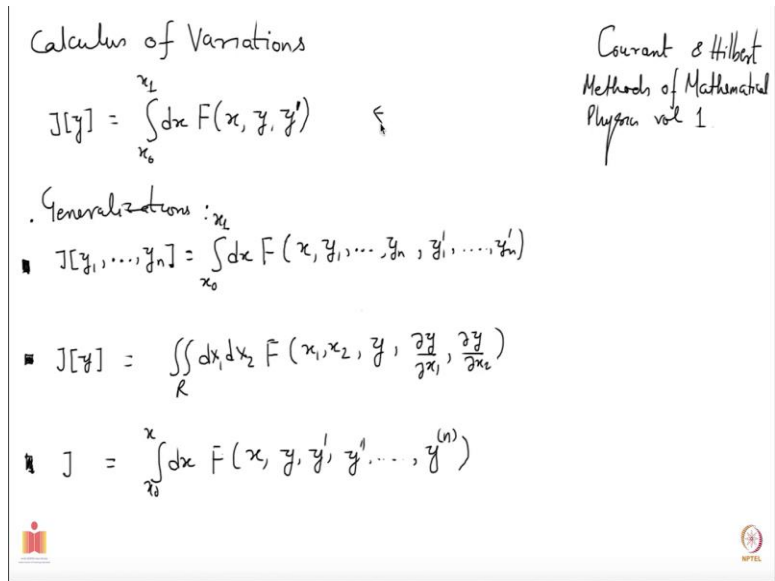 Calculus of Variations
J[y] = ∫_{x_0}^{x_1} dx F(x, y, y')
Courant & Hilbert
Methods of Mathematical
Physics vol 1
. Generalizations :
▪ J[y_1, ..., y_n] = ∫_{x_0}^{x_1} dx F(x, y_1, ..., y_n, y_1', ..., y_n')
▪ J[y] = ∬_R dx_1 dx_2 F(x_1, x_2, y, ∂y/∂x_1, ∂y/∂x_2)
▪ J = ∫_{x_0}^{x} dx F(x, y, y', y'', ..., y^{(n)})
NPTEL